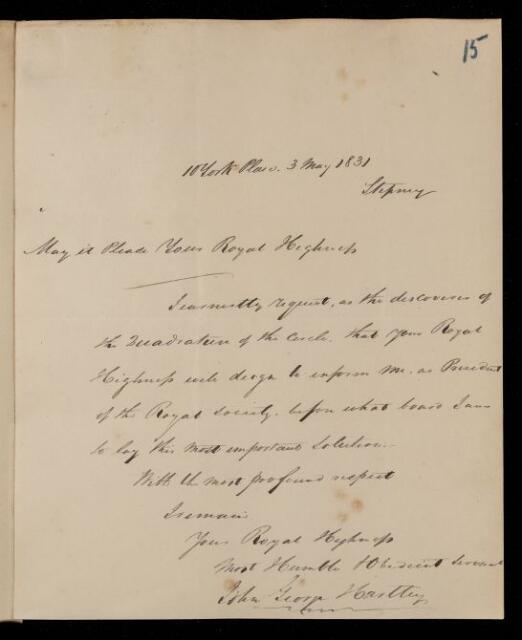 15
10 York Place. 3 May 1831
Stepney
May it Please Your Royal Highness
I earnestly request, as the discoverer of
the Quadrature of the Circle, that your Royal
Highness will deign to inform me, as President
of the Royal Society, before what board I am
to lay this most important solution.
With the most profound respect
I remain
Your Royal Highness
Most Humble Obedient Servant
John George Hartley